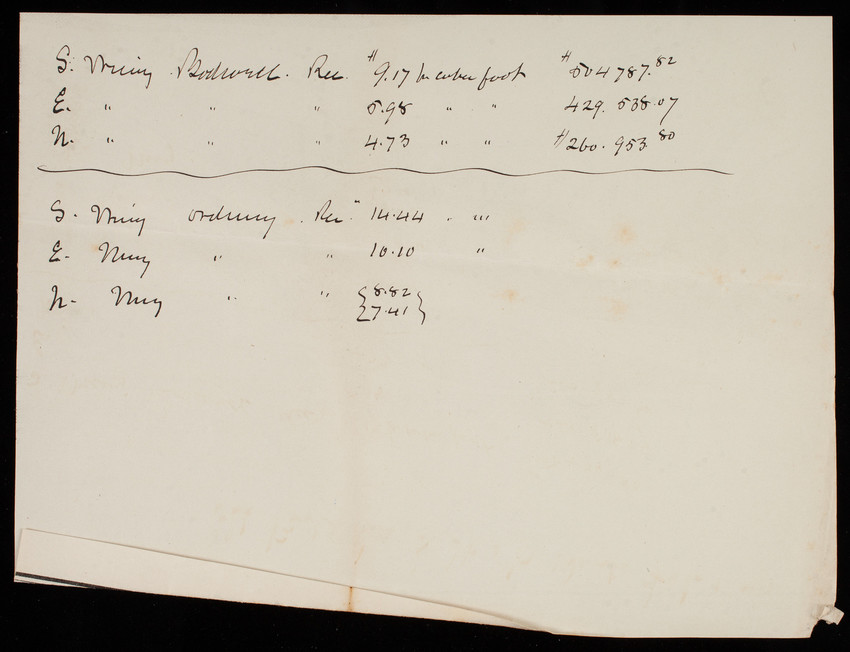 S. Wing Bodwell. Rec. $9.17 per cubic foot $504787.82
E. " " " 5.98 " " 429.538.07
N. " " " 4.73 " " $260.953.80
S. Wing ordinary. Rec" 14.44 " "'
E. Wing " " 10.10 "
N. Wing " " {8.82
{7.41}